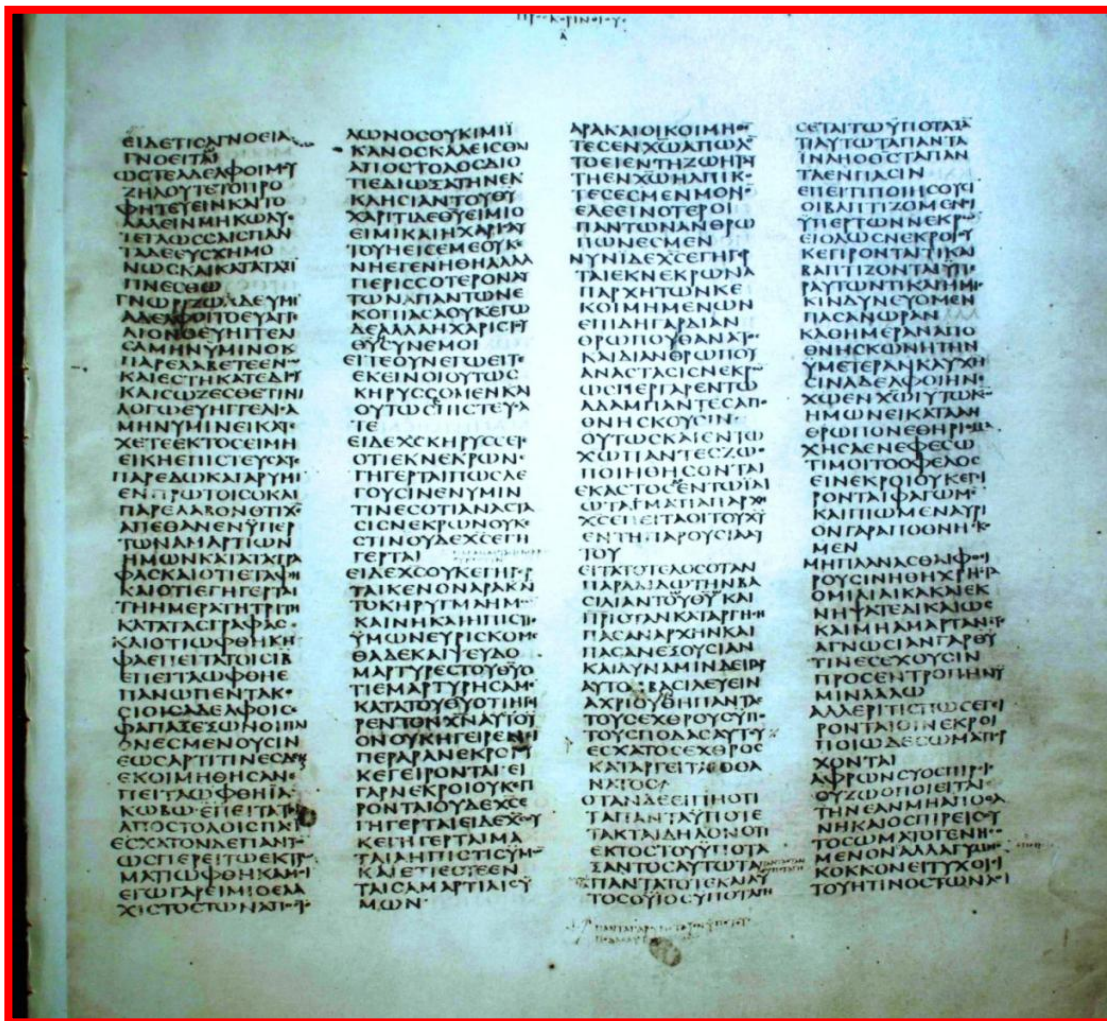 ΠΡΟϹΚΟΡΙΝΘΙΟΥϹ
Α
ΕΙΔΕΤΙϹΑΓΝΟΕΙΑ
ΓΝΟΕΙΤΑΙ
ΩϹΤΕΑΔΕΛΦΟΙΜΟΥ
ΖΗΛΟΥΤΕΤΟΠΡΟ
ΦΗΤΕΥΕΙΝΚΑΙΤΟ
ΛΑΛΕΙΝΜΗΚΩΛΥΕ
ΤΕΓΛΩϹϹΑΙϹΠΑΝ
ΤΑΔΕΕΥϹΧΗΜΟ
ΝΩϹΚΑΙΚΑΤΑΤΑΞΙ
ΓΙΝΕϹΘΩ
ΓΝΩΡΙΖΩΔΕΥΜΙ
ΑΔΕΛΦΟΙΤΟΕΥΑΓΓΕ
ΛΙΟΝΟΕΥΗΓΓΕΛΙ
ϹΑΜΗΝΥΜΙΝΟΚ
ΠΑΡΕΛΑΒΕΤΕΕΝ
ΚΑΙΕϹΤΗΚΑΤΕΔΙΟΥ
ΚΑΙϹΩΖΕϹΘΕΤΙΝΙ
ΛΟΓΩΕΥΗΓΓΕΛΙϹΑ
ΜΗΝΥΜΙΝΕΙΚΑΤΕ
ΧΕΤΕΕΚΤΟϹΕΙΜΗ
ΕΙΚΗΕΠΙϹΤΕΥϹΑΤΕ
ΠΑΡΕΔΩΚΑΓΑΡΥΜΙ
ΕΝΠΡΩΤΟΙϹΟΚΑΙ
ΠΑΡΕΛΑΒΟΝΟΤΙΧϹ
ΑΠΕΘΑΝΕΝΫΠΕΡ
ΤΩΝΑΜΑΡΤΙΩΝ
ΗΜΩΝΚΑΤΑΤΑϹΓΡΑ
ΦΑϹΚΑΙΟΤΙΕΤΑΦΗ
ΚΑΙΟΤΙΕΓΗΓΕΡΤΑΙ
ΤΗΗΜΕΡΑΤΗΤΡΙΤΗ
ΚΑΤΑΤΑϹΓΡΑΦΑϹ
ΚΑΙΟΤΙΩΦΘΗΚΗ
ΦΑΕΠΕΙΤΑΤΟΙϹΙΒ
ΕΠΕΙΤΑΩΦΘΗΕ
ΠΑΝΩΠΕΝΤΑΚΟ
ϹΙΟΙϹΑΔΕΛΦΟΙϹΕ
ΦΑΠΑΞΕΞΩΝΟΙΠΛΙ
ΟΝΕϹΜΕΝΟΥϹΙΝ
ΕΩϹΑΡΤΙΤΙΝΕϹΔΕ
ΕΚΟΙΜΗΘΗϹΑΝΕ
ΠΕΙΤΑΩΦΘΗΪΑ
ΚΩΒΩΕΠΕΙΤΑΤΟΙϹ
ΑΠΟϹΤΟΛΟΙϹΠΑϹΙ
ΕϹΧΑΤΟΝΔΕΠΑΝΤΩ
ΩϹΠΕΡΕΙΤΩΕΚΤΡΩ
ΜΑΤΙΩΦΘΗΚΑΜΟΙ
ΕΓΩΓΑΡΕΙΜΙΟΕΛΑ
ΧΙϹΤΟϹΤΩΝΑΠΟϹΤΟ
ΛΩΝΟϹΟΥΚΙΜΙΪ
ΚΑΝΟϹΚΑΛΕΙϹΘΑΙ
ΑΠΟϹΤΟΛΟϹΔΙΟ
ΤΙΕΔΙΩΞΑΤΗΝΕΚ
ΚΛΗϹΙΑΝΤΟΥΘΥ
ΧΑΡΙΤΙΔΕΘΥΕΙΜΙΟ
ΕΙΜΙΚΑΙΗΧΑΡΙϹΑΥ
ΤΟΥΗΕΙϹΕΜΕΟΥΚΕ
ΝΗΕΓΕΝΗΘΗΑΛΛΑ
ΠΕΡΙϹϹΟΤΕΡΟΝΑΥ
ΤΩΝΑΠΑΝΤΩΝΕ
ΚΟΠΙΑϹΑΟΥΚΕΓΩ
ΔΕΑΛΛΑΗΧΑΡΙϹΤΟΥ
ΘΥϹΥΝΕΜΟΙ
ΕΙΤΕΟΥΝΕΓΩΕΙΤΕ
ΕΚΕΙΝΟΙΟΥΤΩϹ
ΚΗΡΥϹϹΟΜΕΝΚΑΙ
ΟΥΤΩϹΕΠΙϹΤΕΥϹΑ
ΤΕ
ΕΙΔΕΧϹΚΗΡΥϹϹΕΤΑΙ
ΟΤΙΕΚΝΕΚΡΩΝΕ
ΓΗΓΕΡΤΑΙΠΩϹΛΕ
ΓΟΥϹΙΝΕΝΥΜΙΝ
ΤΙΝΕϹΟΤΙΑΝΑϹΤΑ
ϹΙϹΝΕΚΡΩΝΟΥΚΕ
ϹΤΙΝΟΥΔΕΧϹΕΓΗ
ΓΕΡΤΑΙ
ΕΙΔΕΧϹΟΥΚΕΓΗΓΕΡ
ΤΑΙΚΕΝΟΝΑΡΑΚΑΙ
ΤΟΚΗΡΥΓΜΑΗΜΩ
ΚΑΙΝΗΚΑΙΗΠΙϹΤΙϹ
ΫΜΩΝΕΥΡΙϹΚΟΜΕ
ΘΑΔΕΚΑΙΨΕΥΔΟ
ΜΑΡΤΥΡΕϹΤΟΥΘΥΟ
ΤΙΕΜΑΡΤΥΡΗϹΑΜΕ
ΚΑΤΑΤΟΥΘΥΟΤΙΗΓΙ
ΡΕΝΤΟΝΧΝΑΥΤΟΥ
ΟΝΟΥΚΗΓΕΙΡΕΝΕΙ
ΠΕΡΑΡΑΝΕΚΡΟΙΟΥ
ΚΕΓΕΙΡΟΝΤΑΙΕΙ
ΓΑΡΝΕΚΡΟΙΟΥΚΕΓΙ
ΡΟΝΤΑΙΟΥΔΕΧϹΕ
ΓΗΓΕΡΤΑΙΕΙΔΕΧϹΟΥ
ΚΕΓΗΓΕΡΤΑΙΜΑ
ΤΑΙΑΗΠΙϹΤΙϹΫΜΩ
ΚΑΙΕΤΙΕϹΤΕΕΝ
ΤΑΙϹΑΜΑΡΤΙΑΙϹΫ
ΜΩΝ
ΑΡΑΚΑΙΟΙΚΟΙΜΗΘΕ
ΤΕϹΕΝΧΩΑΠΩΛΟ
ΤΟΕΙΕΝΤΗΖΩΗΤΑΥ
ΤΗΕΝΧΩΗΛΠΙΚΟ
ΤΕϹΕϹΜΕΝΜΟΝΟ
ΕΛΕΕΙΝΟΤΕΡΟΙ
ΠΑΝΤΩΝΑΝΘΡΩ
ΠΩΝΕϹΜΕΝ
ΝΥΝΙΔΕΧϹΕΓΗΓΕΡ
ΤΑΙΕΚΝΕΚΡΩΝΑ
ΠΑΡΧΗΤΩΝΚΕ
ΚΟΙΜΗΜΕΝΩΝ
ΕΠΙΔΗΓΑΡΔΙΑΝ
ΘΡΩΠΟΥΘΑΝΑΤΟϹ
ΚΑΙΔΙΑΝΘΡΩΠΟΥ
ΑΝΑϹΤΑϹΙϹΝΕΚΡΩ
ΩϹΠΕΡΓΑΡΕΝΤΩ
ΑΔΑΜΠΑΝΤΕϹΑΠΟ
ΘΝΗϹΚΟΥϹΙΝ
ΟΥΤΩϹΚΑΙΕΝΤΩ
ΧΩΠΑΝΤΕϹΖΩΟ
ΠΟΙΗΘΗϹΟΝΤΑΙ
ΕΚΑϹΤΟϹΕΝΤΩΪΔΙ
ΩΤΑΓΜΑΤΙΑΠΑΡΧΗ
ΧϹΕΠΕΙΤΑΟΙΤΟΥΧΥ
ΕΝΤΗΠΑΡΟΥϹΙΑΑΥ
ΤΟΥ
ΕΙΤΑΤΟΤΕΛΟϹΟΤΑΝ
ΠΑΡΑΔΙΔΩΤΗΝΒΑ
ϹΙΛΙΑΝΤΩΘΩΚΑΙ
ΠΡΙΟΤΑΝΚΑΤΑΡΓΗϹΗ
ΠΑϹΑΝΑΡΧΗΝΚΑΙ
ΠΑϹΑΝΕΞΟΥϹΙΑΝ
ΚΑΙΔΥΝΑΜΙΝΔΕΙΓΑΡ
ΑΥΤΟΝΒΑϹΙΛΕΥΕΙΝ
ΑΧΡΙΟΥΘΗΠΑΝΤΑϹ
ΤΟΥϹΕΧΘΡΟΥϹΫΠΟ
ΤΟΥϹΠΟΔΑϹΑΥΤΟΥ
ΕϹΧΑΤΟϹΕΧΘΡΟϹ
ΚΑΤΑΡΓΕΙΤΑΙΟΘΑ
ΝΑΤΟϹ
ΟΤΑΝΔΕΕΙΠΗΟΤΙ
ΤΑΠΑΝΤΑΫΠΟΤΕ
ΤΑΚΤΑΙΔΗΛΟΝΟΤΙ
ΕΚΤΟϹΤΟΥΫΠΟΤΑ
ΞΑΝΤΟϹΑΥΤΩΤΑ
ΠΑΝΤΑΤΟΤΕΚΑΙΑΥ
ΤΟϹΟΥΪΟϹΥΠΟΤΑΓΗ
ϹΕΤΑΙΤΩΫΠΟΤΑΞΑ
ΤΙΑΥΤΩΤΑΠΑΝΤΑ
ΙΝΑΗΟΘϹΤΑΠΑΝ
ΤΑΕΝΠΑϹΙΝ
ΕΠΕΙΤΙΠΟΙΗϹΟΥϹΙ
ΟΙΒΑΠΤΙΖΟΜΕΝΟΙ
ΫΠΕΡΤΩΝΝΕΚΡΩ
ΕΙΟΛΩϹΝΕΚΡΟΙΟΥ
ΚΕΓΙΡΟΝΤΑΙΤΙΚΑΙ
ΒΑΠΤΙΖΟΝΤΑΙΫΠΕ
ΡΑΥΤΩΝΤΙΚΑΙΗΜΙϹ
ΚΙΝΔΥΝΕΥΟΜΕΝ
ΠΑϹΑΝΩΡΑΝ
ΚΑΘΗΜΕΡΑΝΑΠΟ
ΘΝΗϹΚΩΝΗΤΗΝ
ΫΜΕΤΕΡΑΝΚΑΥΧΗ
ϹΙΝΑΔΕΛΦΟΙΗΝΕ
ΧΩΕΝΧΩΙΥΤΩΚΩ
ΗΜΩΝΕΙΚΑΤΑΑΝ
ΘΡΩΠΟΝΕΘΗΡΙΟΜΑ
ΧΗϹΑΕΝΕΦΕϹΩ
ΤΙΜΟΙΤΟΟΦΕΛΟϹ
ΕΙΝΕΚΡΟΙΟΥΚΕΓΙ
ΡΟΝΤΑΙΦΑΓΩΜΕ
ΚΑΙΠΙΩΜΕΝΑΥΡΙ
ΟΝΓΑΡΑΠΟΘΝΗϹΚΟ
ΜΕΝ
ΜΗΠΛΑΝΑϹΘΑΙΦΘΙ
ΡΟΥϹΙΝΗΘΗΧΡΗϹΤΑ
ΟΜΙΛΙΑΙΚΑΚΑΙΕΚ
ΝΗΨΑΤΕΔΙΚΑΙΩϹ
ΚΑΙΜΗΑΜΑΡΤΑΝΕΤΕ
ΑΓΝΩϹΙΑΝΓΑΡΘΥ
ΤΙΝΕϹΕΧΟΥϹΙΝ
ΠΡΟϹΕΝΤΡΟΠΗΝΫ
ΜΙΝΛΑΛΩ
ΑΛΛΕΡΙΤΙϹΠΩϹΕΓΙ
ΡΟΝΤΑΙΟΙΝΕΚΡΟΙ
ΠΟΙΩΔΕϹΩΜΑΤΙΕΡ
ΧΟΝΤΑΙ
ΑΦΡΩΝϹΥΟϹΠΙΡΕΙϹ
ΟΥΖΩΟΠΟΙΕΙΤΑΙ
ΤΗΝΕΑΝΜΗΑΠΟΘΑ
ΝΗΚΑΙΟϹΠΙΡΕΙϹΟΥ
ΤΟϹΩΜΑΤΟΓΕΝΗϹΟ
ΜΕΝΟΝΑΛΛΑΓΥΜΝΟ
ΚΟΚΚΟΝΕΙΤΥΧΟΙϹΙ
ΤΟΥΗΤΙΝΟϹΤΩΝΛΟΙ